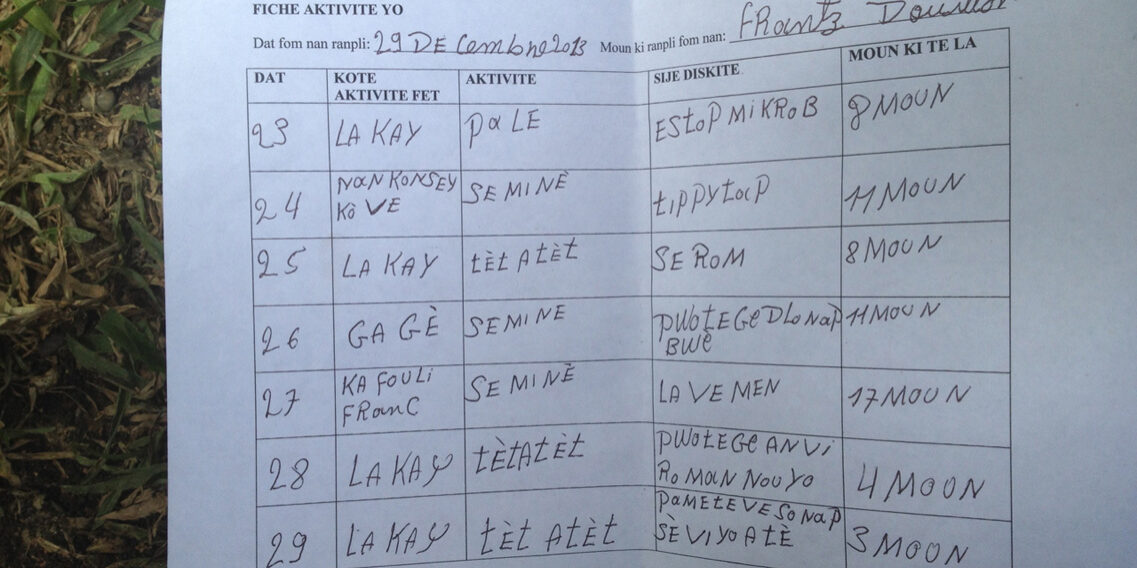 FICHE AKTIVITE YO
Dat fom nan ranpli: 29 DEcembre 2013 Moun ki ranpli fom nan: FRantz
DAT KOTE AKTIVITE FET AKTIVITE SIJE DISKITE MOUN KI TE LA
23 LA KAY PaLE EStoP MiKRoB 8 MOUN
24 NaN KONSEY SEMINÈ tiPPYtaP 11 MOUN
Kò VE
25 LA KAY tÈt AtÈt SE RoM 8 MOUN
26 GA GÈ SEMINE PWotEGE DLo NaP 11 MOUN
BWè
27 KA FOULi SE MINÈ LA VE MEN 17 MOUN
FRanC
28 LA KAY tÈtAtÈt PWotEGE ANVi 4 MOON
Ro MaN NOU YO
29 LA KAY tÈt AtÈt PaMEtEVESO NaP 3 MOON
SÈVi YO A tÈ